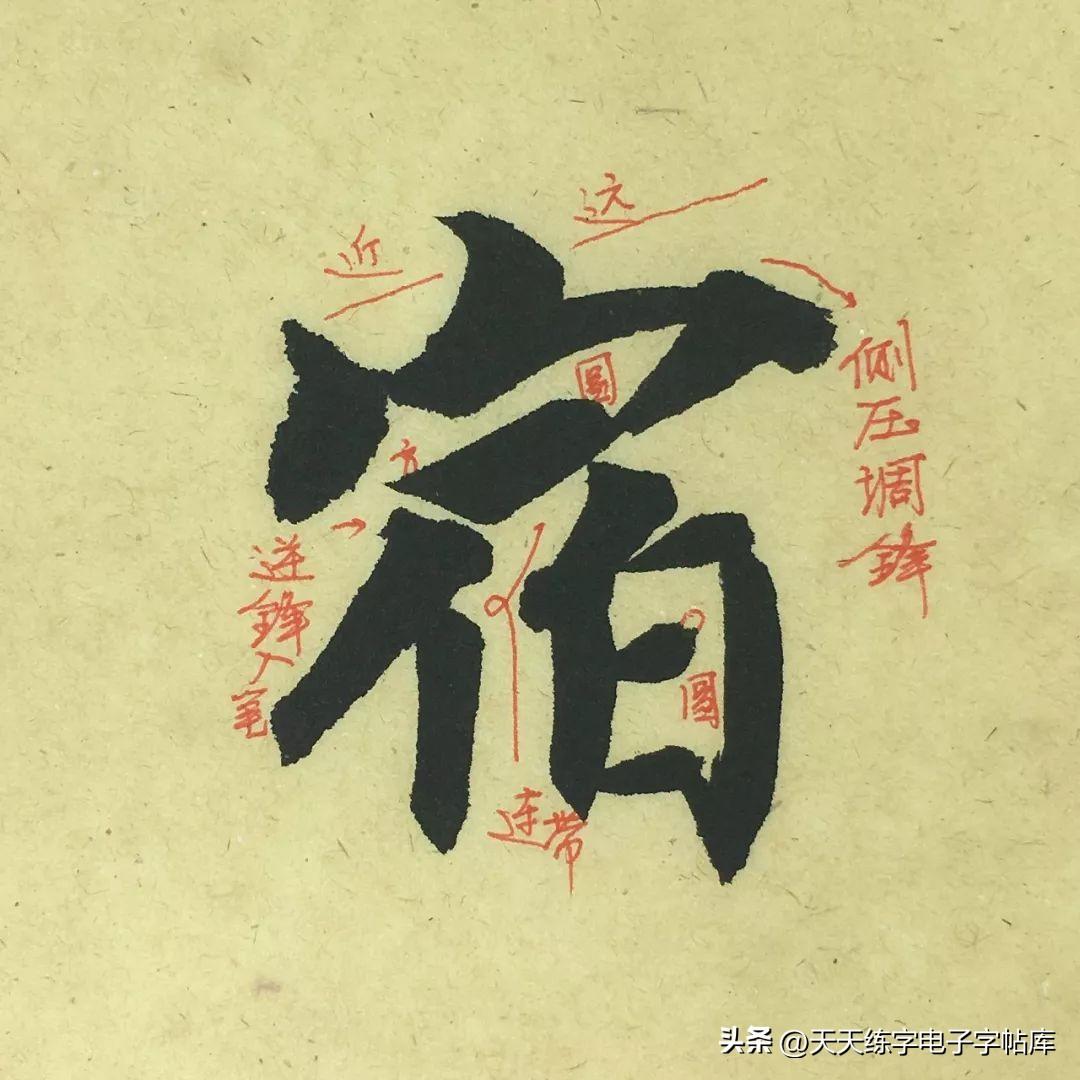 远
近
宿
圆
侧压调锋
方
逆锋入笔
圆
连带
头条 @天天练字电子字帖库